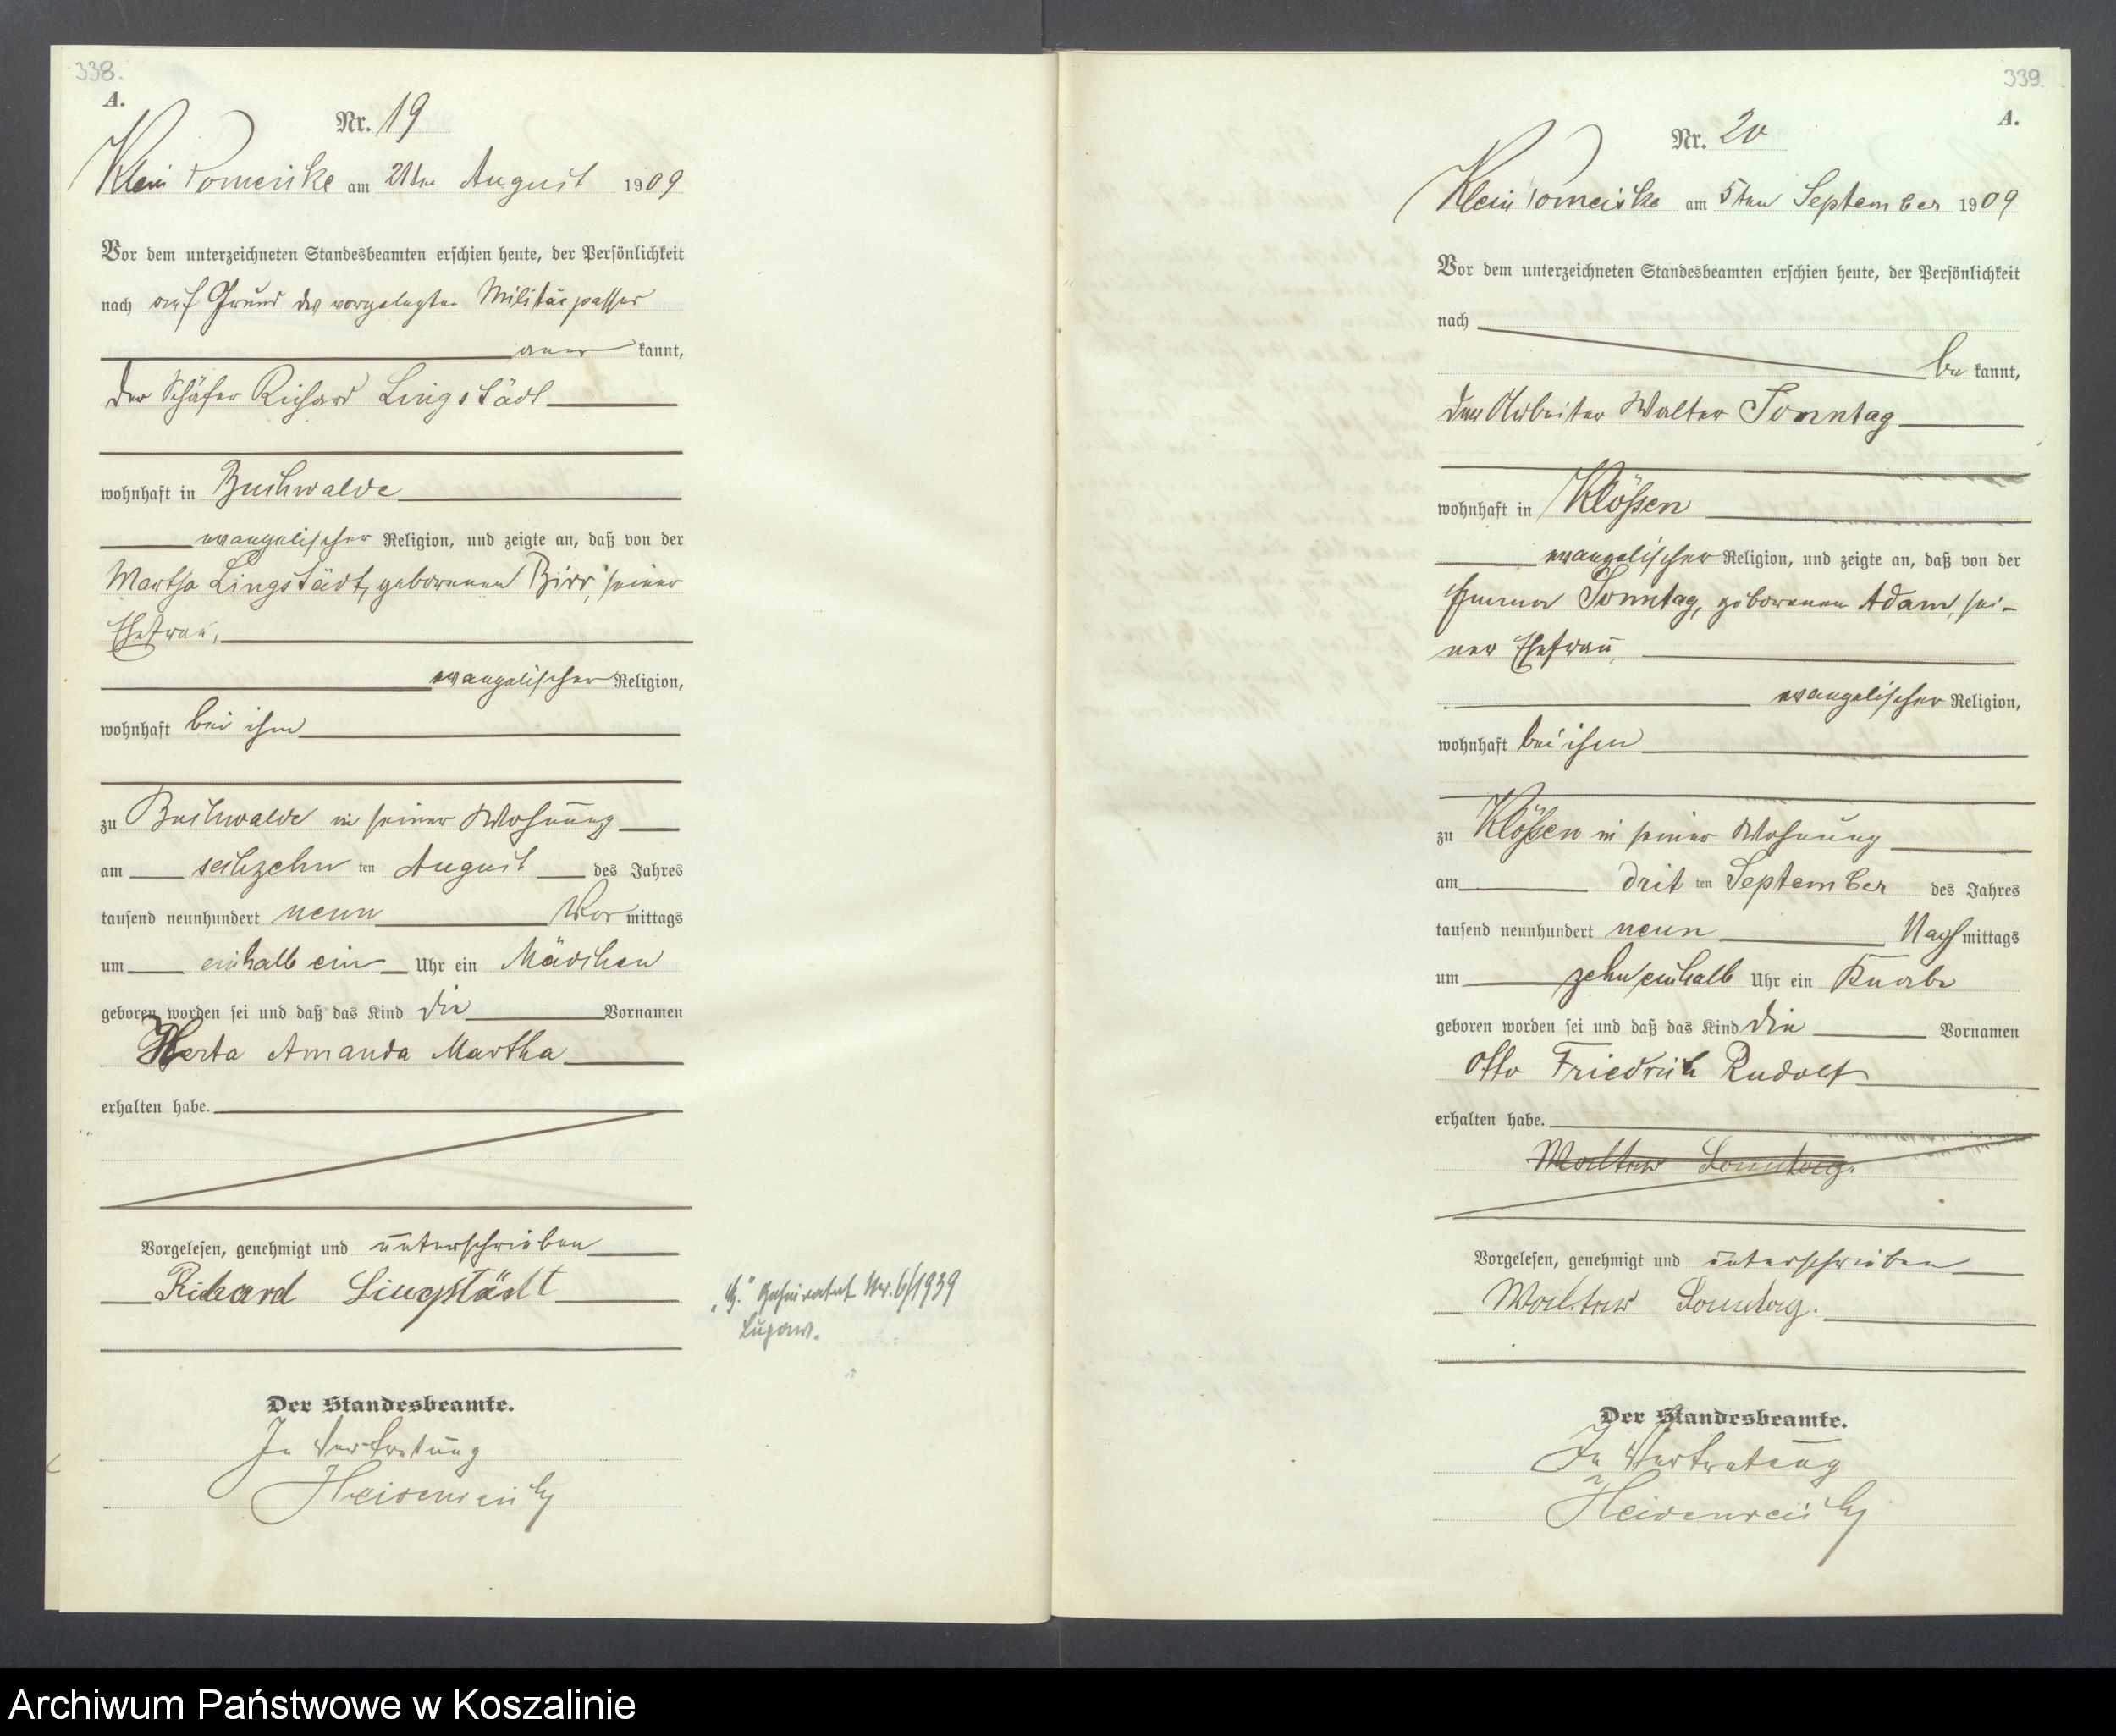 338.
A.
Nr. 19
Klein Pomeiske am 21ten August 1909
Vor dem unterzeichneten Standesbeamten erschien heute, der Persönlichkeit
nach auf Grund des vorgelegten Militärpasses
aner kannt,
der Schäfer Richard Lingstädt
wohnhaft in Buchwalde
evangelischer Religion, und zeigte an, daß von der
Martha Lingstädt, geborenen Birr, seiner
Ehefrau,
evangelischer Religion,
wohnhaft bei ihm
zu Buchwalde in seiner Wohnung
am sechzehn ten August des Jahres
tausend neunhundert neun Vor mittags
um einhalb ein Uhr ein Mädchen
geboren worden sei und daß das Kind die Vornamen
Herta Amanda Martha
erhalten habe.
Vorgelesen, genehmigt und unterschrieben
Richard Lingstädt
Der Standesbeamte.
In Vertretung
Heidenreich
geheiratet Nr. 6/1939
Lupow.
339.
A.
Nr. 20
Klein Pomeiske am 5ten September 1909
Vor dem unterzeichneten Standesbeamten erschien heute, der Persönlichkeit
nach
be kannt,
der Arbeiter Walter Sonntag
wohnhaft in Klößen
evangelischer Religion, und zeigte an, daß von der
Emma Sonntag, geborenen Adam, sei-
ner Ehefrau,
evangelischer Religion,
wohnhaft bei ihm
zu Klößen in seiner Wohnung
am drit ten September des Jahres
tausend neunhundert neun Nach mittags
um zehn einhalb Uhr ein Knabe
geboren worden sei und daß das Kind die Vornamen
Otto Friedrich Rudolf
erhalten habe.
Walter Sonntag.
Vorgelesen, genehmigt und unterschrieben
Walter Sonntag.
Der Standesbeamte.
In Vertretung
Heidenreich
Archiwum Państwowe w Koszalinie